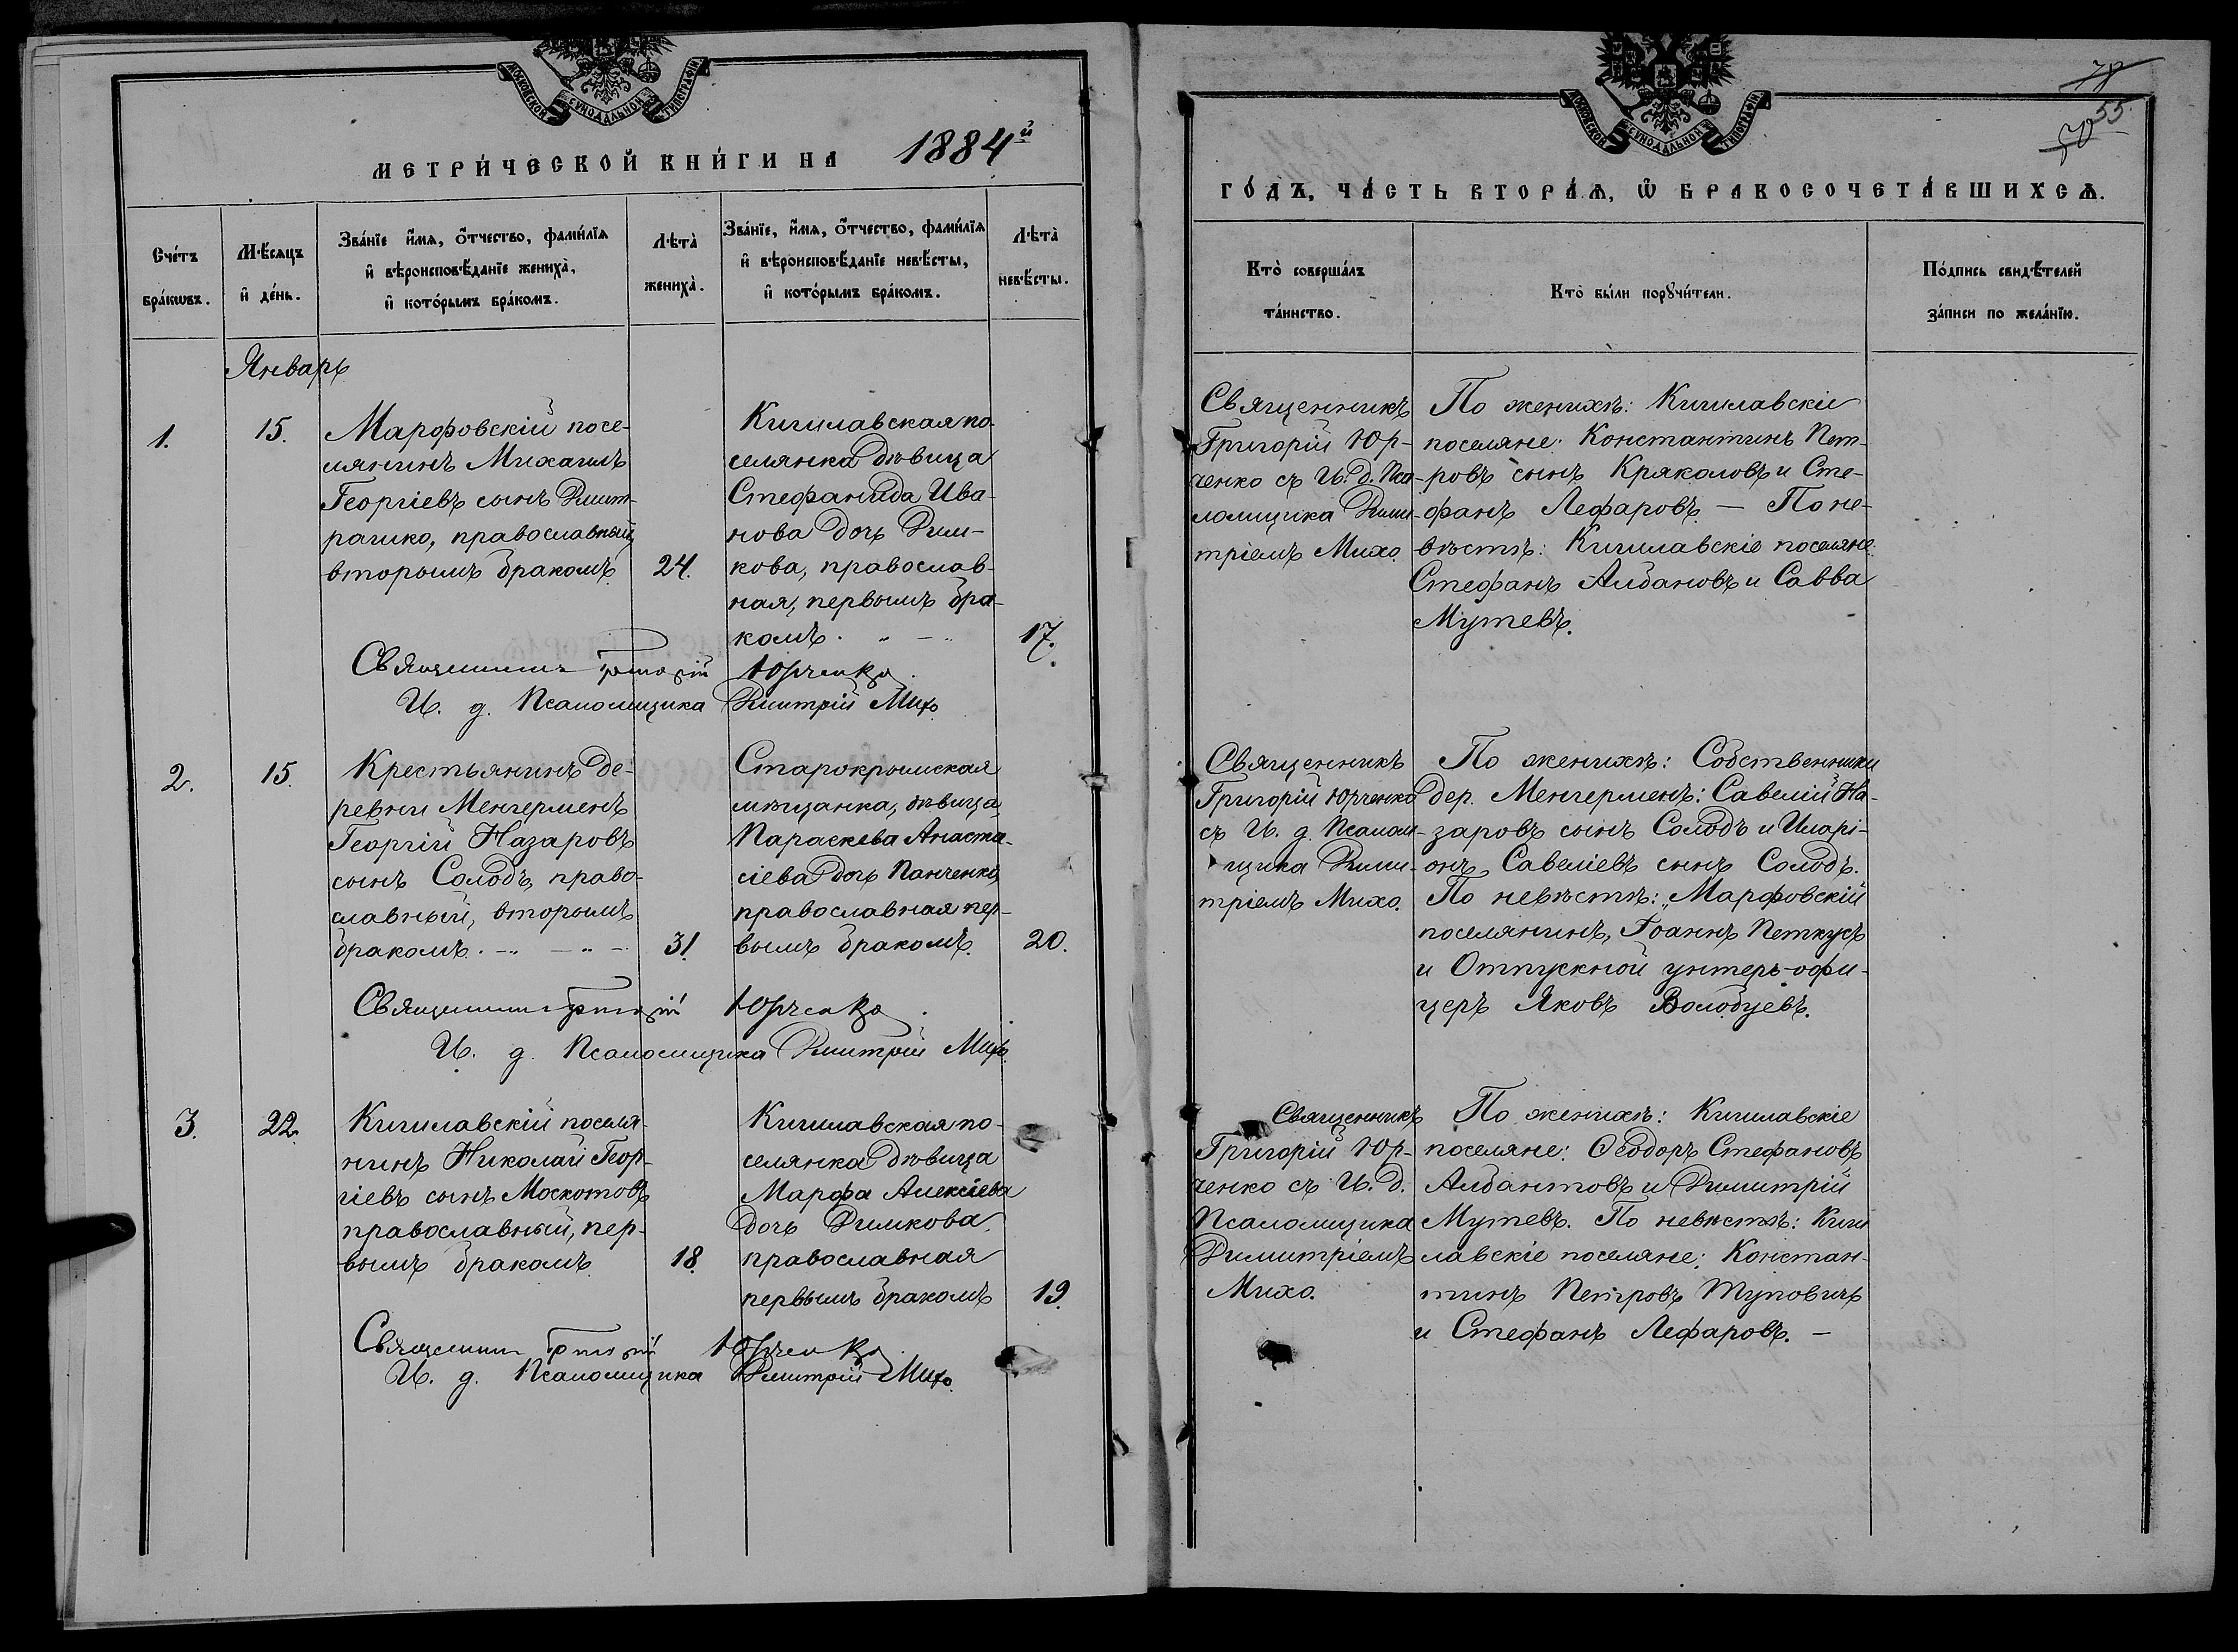 МОСКОВСКОЙ СѴНОДАЛЬНОЙ ТИПОГРАФІИ
МЕТРИ́ЧЕСКОЙ КНИ́ГИ НА 1884й
Сче́тъ бра́кѡвъ.
Мѣ́сяцъ и҆ де́нь.
Зва́нїе и҆́мѧ, ѻ҆́тчество, фами́лїѧ
и҆ вѣроисповѣ́данїе жениха̀,
и҆ кото́рымъ бра́комъ.
Лѣта̀ жениха̀.
Зва́нїе, и҆́мѧ, ѻ҆́тчество, фами́лїѧ
и҆ вѣроисповѣ́данїе невѣ́сты,
и҆ кото́рымъ бра́комъ.
Лѣта̀ невѣ́сты.
Январь
1.
15.
Марфовскій посе-
лянинъ Михаилъ
Георгіевъ сынъ Дмит-
рашко, православный,
вторымъ бракомъ.
24.
Кишлавская по-
селянка дѣвица
Стефанида Ива-
нова дочь Дим-
кова, православ-
ная, первымъ бра-
комъ.
17.
Священникъ Григорій Юрченко.
И. д. Псаломщика Дмитрій Михо.
2.
15.
Крестьянинъ де-
ревни Менгерменъ
Георгій Назаровъ
сынъ Солодъ, право-
славный, вторымъ
бракомъ.
31.
Старокрымская
мѣщанка, дѣвица,
Параскева Анаста-
сіева дочь Панченко,
православная пер-
вымъ бракомъ.
20.
Священникъ Григорій Юрченко.
И. д. Псаломщика Дмитрій Михо.
3.
22.
Кишлавскій поселя-
нинъ Николай Геор-
гіевъ сынъ Москотовъ
православный, пер-
вымъ бракомъ.
18.
Кишлавская по-
селянка дѣвица
Марфа Алексіева
дочь Димкова,
православная
первымъ бракомъ
19.
Священникъ Григорій Юрченко.
И. д. Псаломщика Дмитрій Михо.
МОСКОВСКОЙ СѴНОДАЛЬНОЙ ТИПОГРАФІИ
78
55.
ГО́ДЪ, ЧА́СТЬ ВТОРА́Ѧ, Ѽ БРАКОСОЧЕТА́ВШИХСѦ.
Кто̀ соверша́лъ
та́инство.
Кто̀ бы́ли порꙋчи́тели.
По́дпись свидѣ́телей
за́писи по жела́нїю.
Священникъ
Григорій Юр-
ченко съ И. д. Пса-
ломщика Дими-
тріемъ Михо.
По женихѣ: Кишлавскіе
поселяне: Константинъ Пет-
ровъ сынъ Кряколовъ и Сте-
фанъ Лефаровъ. — По не-
вѣстѣ: Кишлавскіе поселяне:
Стефанъ Албановъ и Савва
Мутевъ.
Священникъ
Григорій Юрченко
съ И. д. Псалом-
щика Дими-
тріемъ Михо.
По женихѣ: Собственники
дер. Менгерменъ: Савелій На-
заровъ сынъ Солодъ и Иларі-
онъ Савеліевъ сынъ Солодъ.
По невѣстѣ: Марфовскій
поселянинъ, Іоаннъ Петкусъ
и Отпускной унтеръ-офи-
церъ Яковъ Володуевъ.
Священникъ
Григорій Юр-
ченко съ И. д.
Псаломщика
Димитріемъ
Михо.
По женихѣ: Кишлавскіе
поселяне: Ѳеодоръ Стефановъ
Албантовъ и Димитрій
Мутевъ. По невѣстѣ: Киш-
лавскіе поселяне: Констан-
тинъ Петровъ Туповичъ
и Стефанъ Лефаровъ. —